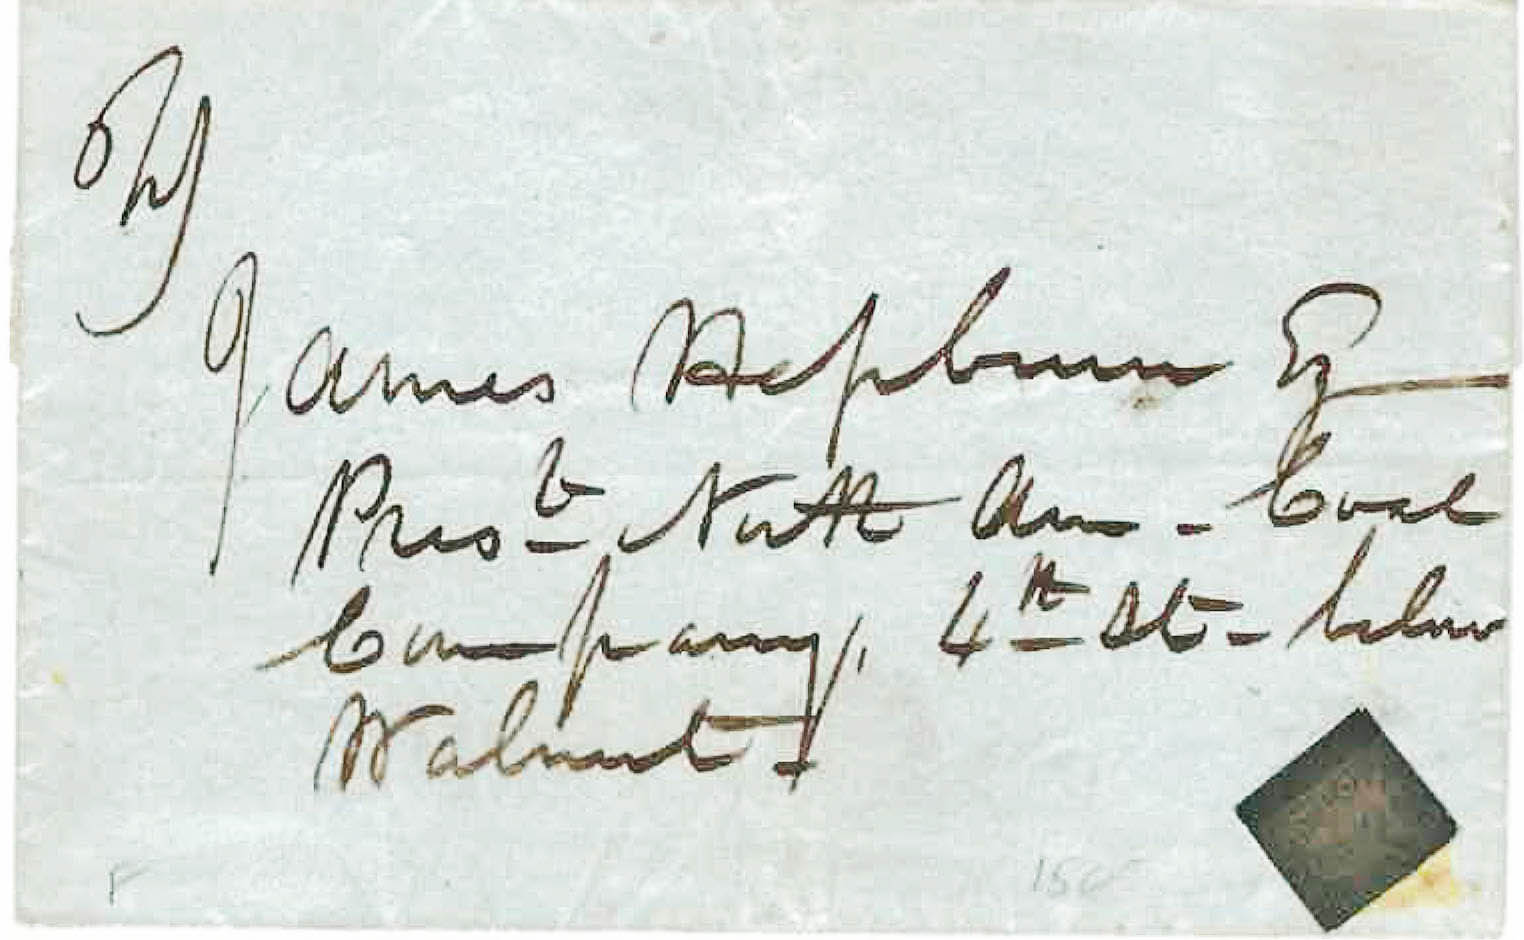 James Hepburn Esq
Prest North Am - Coal
Company, 4th St - below
Walnut -
150